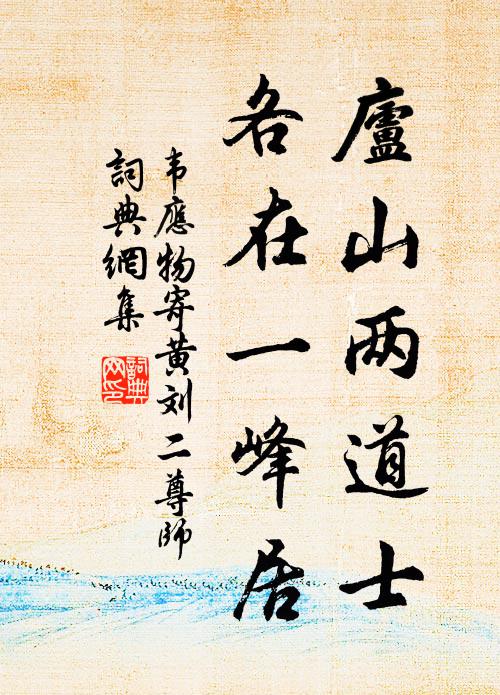 廬山两道士
各在一峰居
韦應物寄黄刘二尊師
詞典網集
詞典
网印